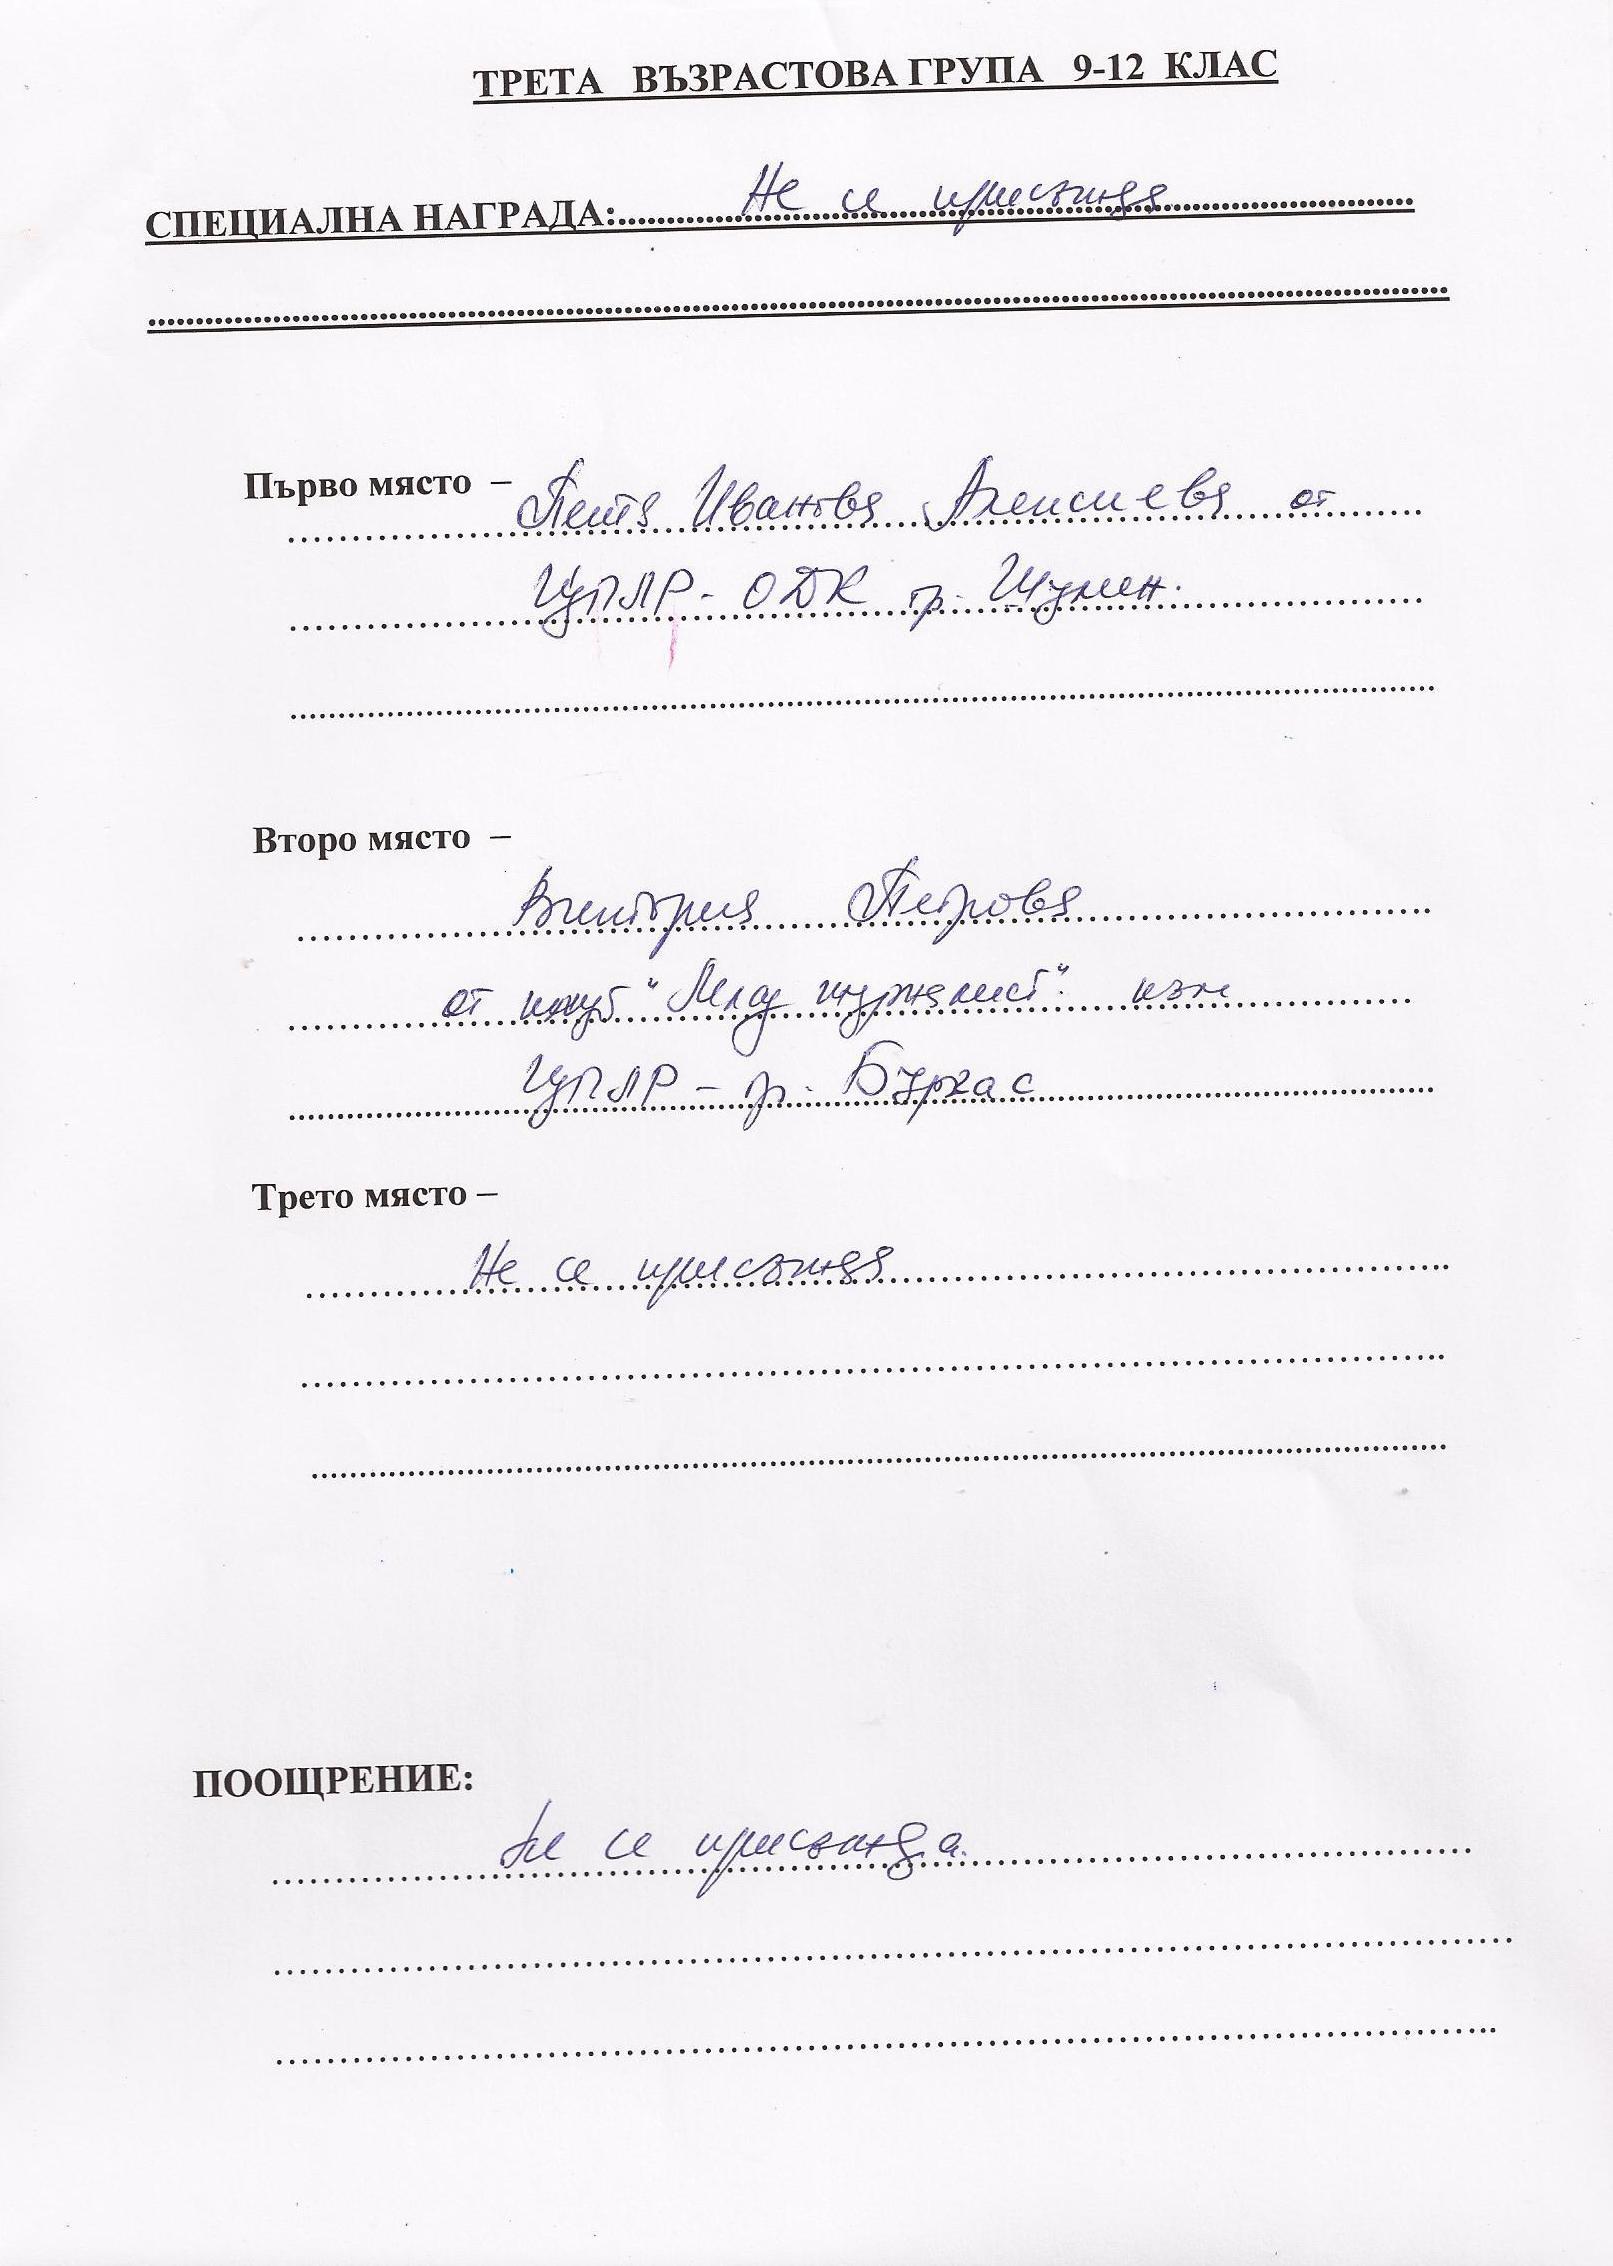 ТРЕТА ВЪЗРАСТОВА ГРУПА 9-12 КЛАС
СПЕЦИАЛНА НАГРАДА: Не се присъжда
Първо място –
Петя Иванова Алексиева от
ЦПЛР - ОДК гр. Шумен.
Второ място –
Виктория Петрова
от клуб "Млад журналист" към
ЦПЛР – гр. Бургас
Трето място –
Не се присъжда
ПООЩРЕНИЕ:
Не се присъжда.